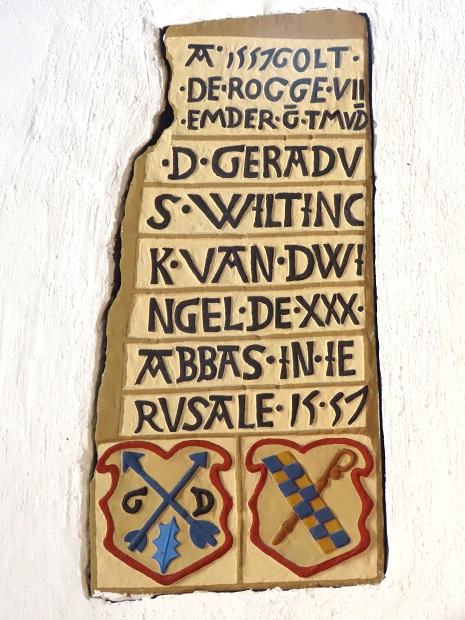 A· 1557 GOLT·
·DE·ROGGE·VII
·EMDER·Ḡ·TMVD̄
·D·GERADV
S·WILTINC
K·VAN·DWI
NGEL·DE·XXX·
ABBAS·IN·IE
RVSALE·15·57
G D